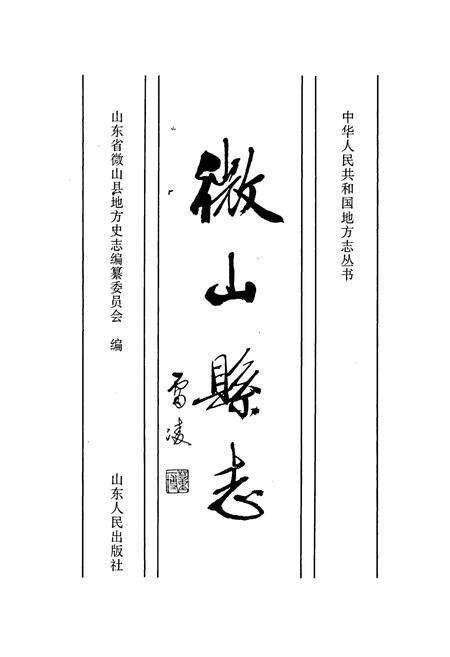 中华人民共和国地方志丛书
微山縣志
雷凌
山东省微山县地方史志编纂委员会 编
山东人民出版社